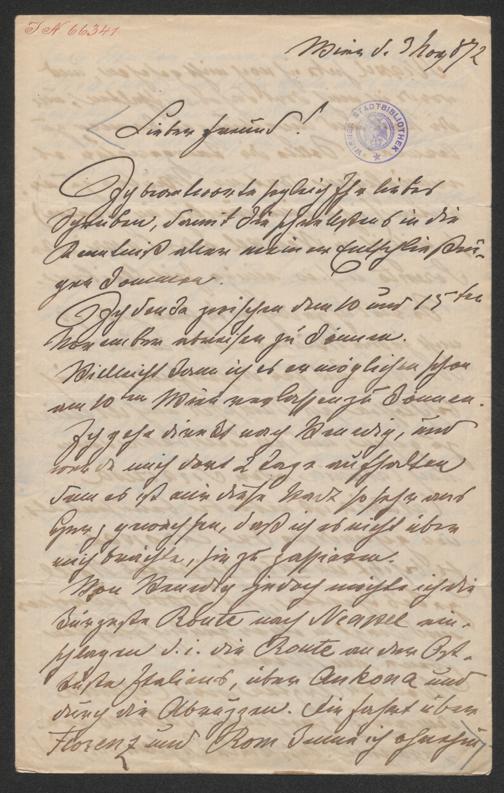 JN 66341
Wien d. 3 Nov 872
WIENER STADTBIBLIOTHEK
Lieber Freund!
Ich beantworte sogleich Ihr liebes
Schreiben, damit Sie schnellstens in die
Kenntniß aller meiner Entschließun-
gen kommen.
Ich denke zwischen dem 10 und 15ten
November abreisen zu können.
Vielleicht kann ich es ermöglichen schon
am 10ten Wien verlassen zu können.
Ich gehe direkt nach Venedig, und
werde mich dort 2 Tage aufhalten
denn es ist mir diese Stadt so sehr ans
Herz gewachsen, daß ich es nicht über
mich brächte, sie zu passieren.
Von Venedig jedoch möchte ich die
kürzeste Route nach Neapel ein-
schlagen d. i. die Route an der Ost-
küste Italiens, über Ankona und
durch die Abruzzen. Die Fahrt über
Florenz und Rom kenne ich ohnehin